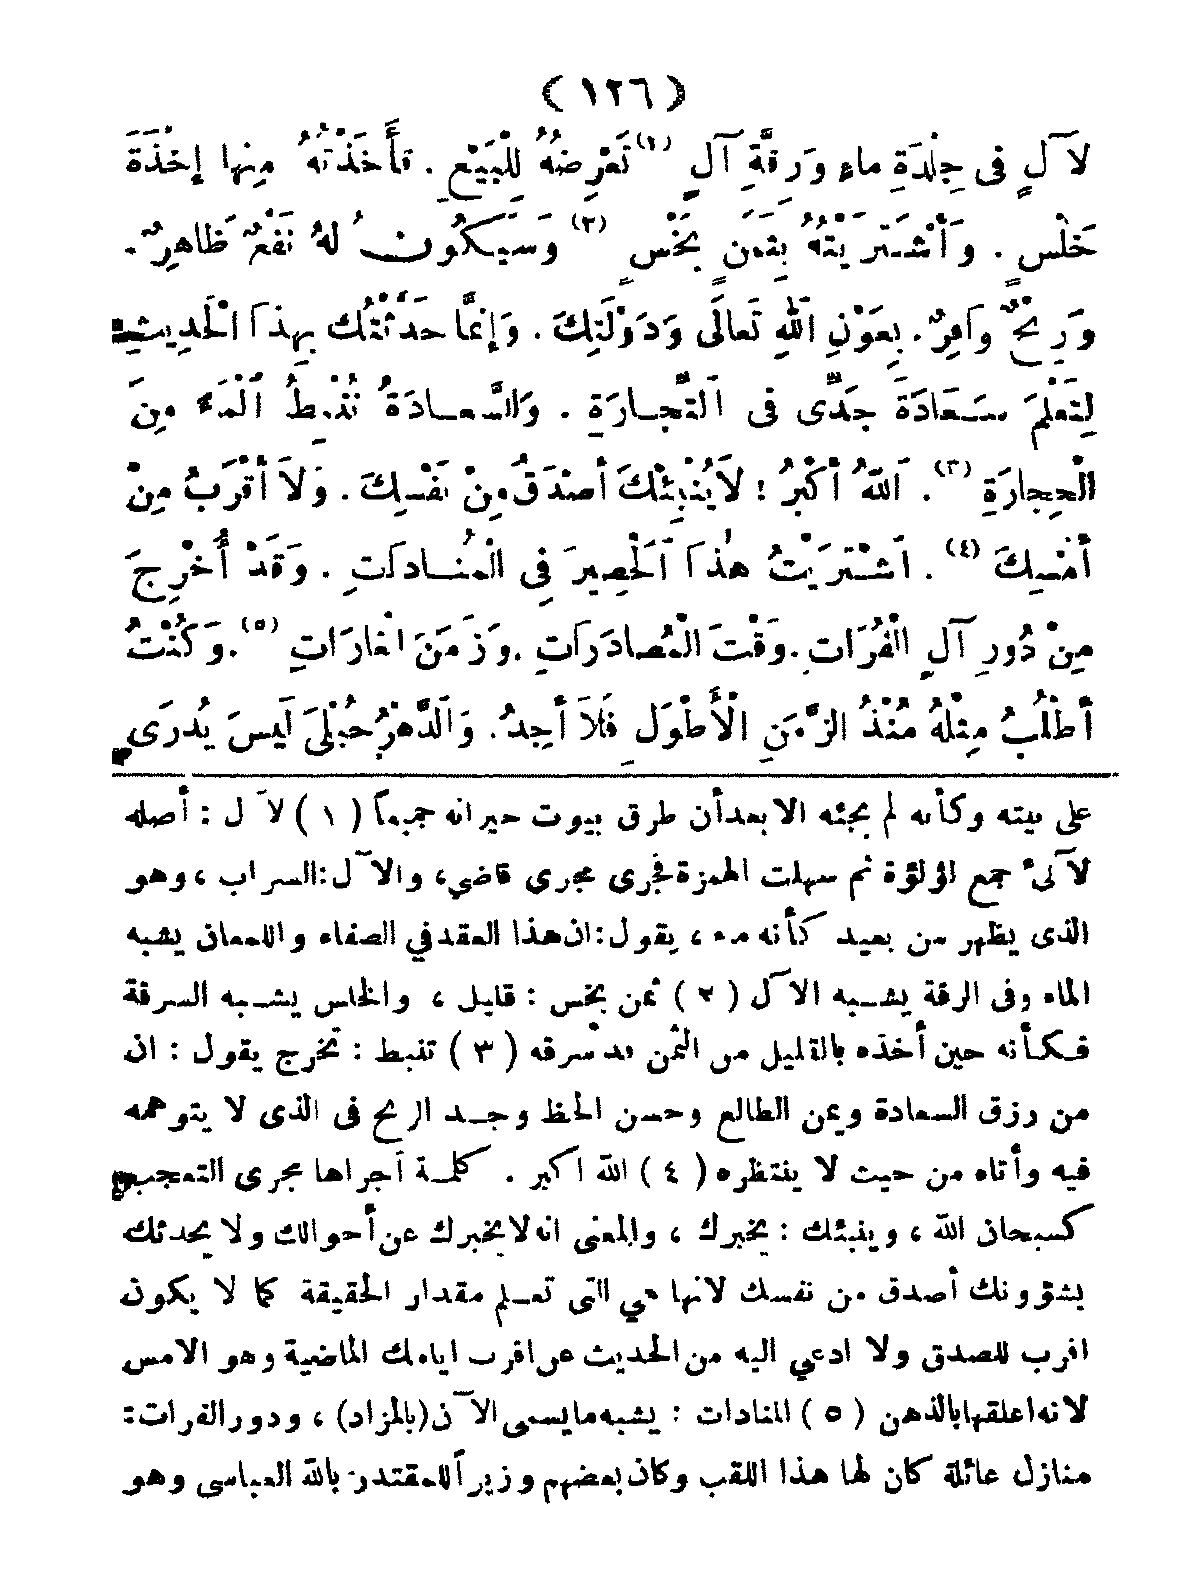 ( ١٢٦ )
لَآلٍ فِى جِلْدَةِ ماءٍ وَرِقَّةِ آلٍ (١) تَعْرِضُهُ لِلْبَيْعِ . فَأَخَذْتُهُ مِنها إِخْذَةَ
خَلْسٍ . وَأَشْتَرَيْتُهُ بِثَمَنٍ بَخْسٍ (٢) وَسَيَكُونُ لهُ نَفْعٌ ظَاهِرٌ .
وَرِبْحٌ وافِرٌ . بِعَوْنِ اللهِ تَعالَى وَدَوْلَتِكَ . وَإِنَّمَا حَدَّثْتُكَ بِهذا الْحَدِيثِ
لِتَعْلَمَ سَعَادَةَ جَدِّى فِى التِّجارَةِ . وَالسَّعادَةُ تُنْبِطُ الْمَاءَ مِنَ
الْحِجارَةِ (٣) . اَللهُ أَكْبَرُ ! لاَيُنْبِئُكَ أَصْدَقُ مِنْ نَفْسِكَ . وَلاَ أَقْرَبُ مِنْ
أَمْسِكَ (٤) . اَشْتَرَيْتُ هٰذَا الْحَصِيرَ فِى الْمُنادَاتِ . وَقَدْ أُخْرِجَ
مِنْ دُورِ آلِ الْفُرَاتِ . وَقْتَ الْمُصادَرَاتِ . وَزَمَنَ الْغارَاتِ (٥) . وَكُنْتُ
أَطْلُبُ مِثْلَهُ مُنْذُ الزَّمَنِ الْأَطْوَلِ فَلاَ أَجِدُ . وَالدَّهْرُ حُبْلَى لَيسَ يُدرَى
على بيته وكأنه لم يجئه الا بعد أن طرق بيوت جيرانه جميعاً ( ١ ) لآل : أصله
لآلئ جمع لؤلؤة ثم سهلت الهمزة فجرى مجرى قاضي، والآل : السراب ، وهو
الذى يظهر من بعيد كأنه ماء ، يقول : ان هذا العقد في الصفاء واللمعان يشبه
الماء وفى الرقة يشبه الآل ( ٢ ) ثمن بخس : قليل ، والخلس يشبه السرقة
فكأنه حين أخذه بالقليل من الثمن قد سرقه ( ٣ ) تنبط : تخرج يقول : ان
من رزق السعادة ويمن الطالع وحسن الحظ وجد الربح فى الذى لا يتوهمه
فيه وأتاه من حيث لا ينتظره ( ٤ ) الله اكبر . كلمة أجراها مجرى التعجب
كسبحان الله ، وينبئك : يخبرك ، والمعنى انه لا يخبرك عن أحوالك ولا يحدثك
بشؤونك أصدق من نفسك لانها هي التى تعلم مقدار الحقيقة كما لا يكون
اقرب للصدق ولا ادعي اليه من الحديث عن اقرب ايامك الماضية وهو الامس
لانه اعلقها بالذهن ( ٥ ) المنادات : يشبه مايسمى الآن (بالمزاد) ، ودور الفرات :
منازل عائلة كان لها هذا اللقب وكان بعضهم وزيراً للمقتدر بالله العباسى وهو